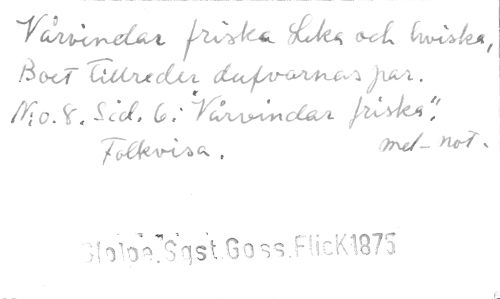 Vårvindar friska Leka och hviska,
Boet tillreder dufvornas par.
N:o. 8. Sid. 6: "Vårvindar friska".
Folkvisa. mel-not.
Stolpe. Sgst. Goss. Flick 1875